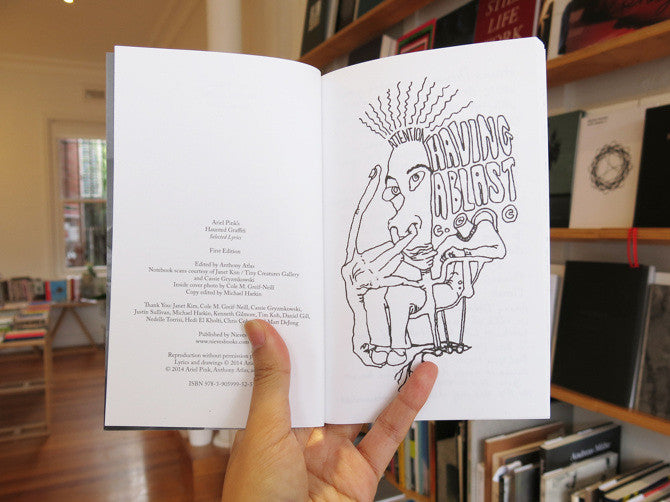 Ariel Pink's
Haunted Graffiti
Selected Lyrics
First Edition
Edited by Anthony Atlas
Notebook scans courtesy of Janet Kim / Tiny Creatures Gallery
and Cassie Gryzmkowski
Inside cover photo by Cole M. Greif-Neill
Copy edited by Michael Harkin
Thank You: Janet Kim, Cole M. Greif-Neill, Cassie Gryzmkowski,
Justin Sullivan, Michael Harkin, Kenneth Gilmore, Tim Koh, Daniel Gill,
Nedelle Torrisi, Hedi El Kholti, Chris
Published by
www.nievesbooks.com
Reproduction without permission
Lyrics and drawings © 2014
© 2014 Ariel Pink, Anthony Atlas,
ISBN 978-3-905999-52-
ATTENTION
HAVING
A BLAST
STILL
LIFE
WORK
Andreas